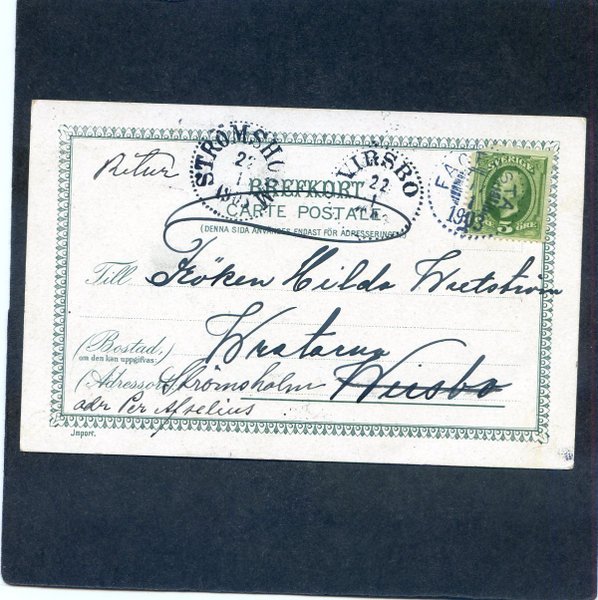 Retur
STRÖMSHOLM
2
1
1903
VIRSBO
22
1
FAGERSTA
1903
SVERIGE
5 ÖRE
BREFKORT
CARTE POSTALE
(DENNA SIDA ANVÄNDES ENDAST FÖR ADRESSERINGEN)
Till Fröken Hilda Wretström
(Bostad,)
om den kan uppgifvas
(Adressort)
Strömsholm Wirsbo
adr Per Afselius
Import.